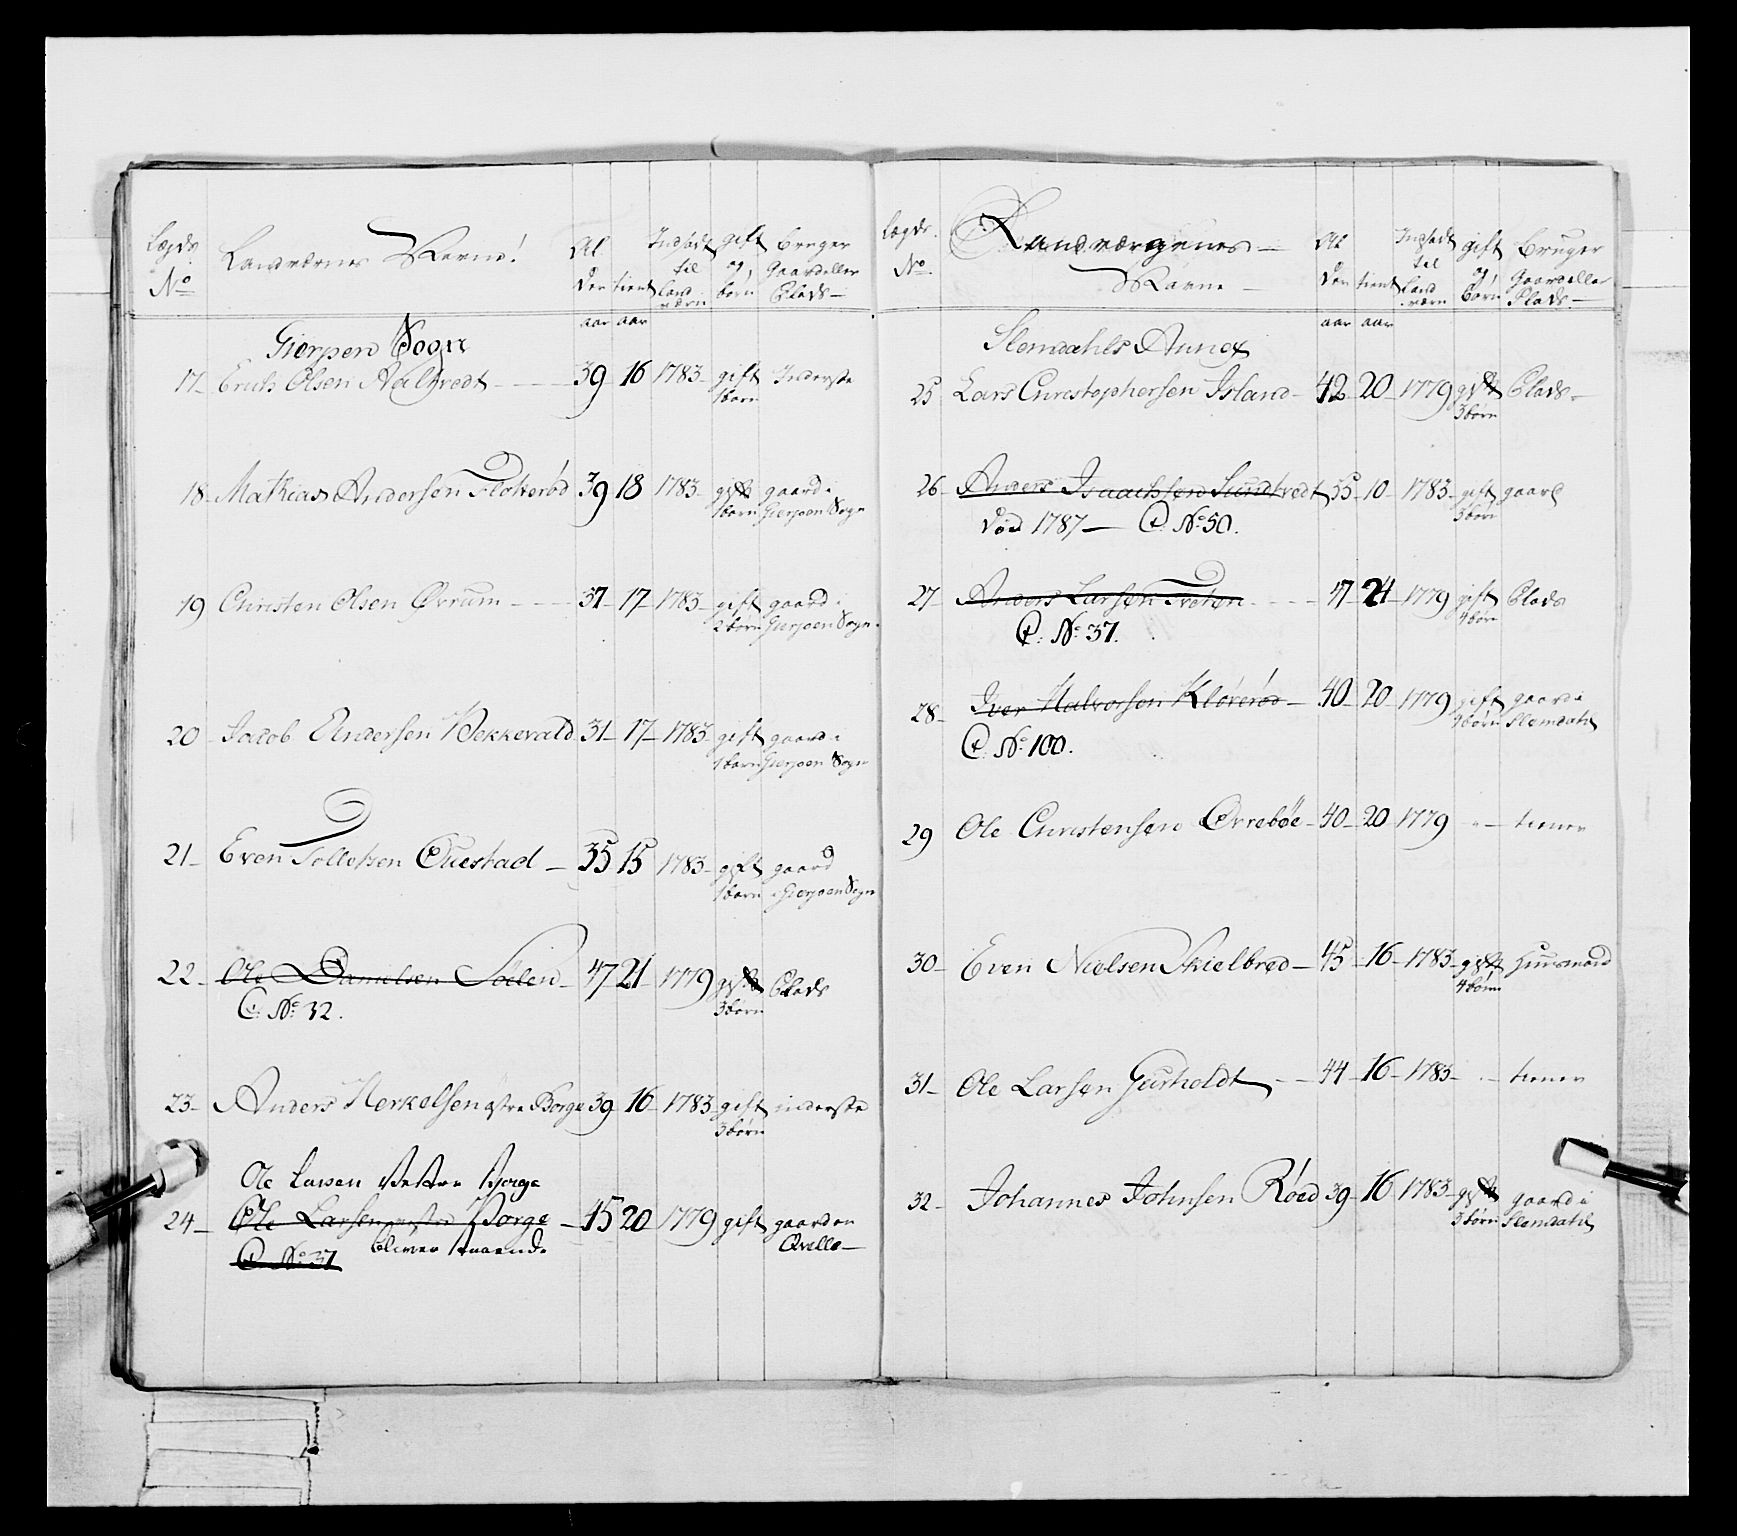 Lægds No | Landværnes Navne! | Al der | tient | Indsadt til Land værn | gift og börn | bruger Gaard eller Plads
aar aar
Gierpen Sogn
17 Erich Olsen Aalfvedt 39 16 1783 gift 1 barn Inderste
18 Mathias Andersen Flokerød 39 18 1783 gift 1 barn gaard i Gierpen Sogn
19 Christen Olsen Øvrum 37 17 1783 gift 2 børn gaard i Gierpen Sogn
20 Jacob Andersen Bekkevald 31 17 1783 gift 1 barn gaard i Gierpen Sogn
21 Even Tollefsen Ouestad 35 15 1783 gift 1 barn gaard i Gierpen Sogn
22 Ole Danielsen Solem 47 21 1779 gift 3 børn Plads
C: No 32.
23 Anders Herkelsen østre Borge 39 16 1783 gift 3 børn inderste
Ole Larsen Borge
24 Ole Larsen Borge 45 20 1779 gift gaard en Qvelle
C No 37 bliver staaende
Lægds No | Landværgenes Navne | Al der | tient | Indsadt til Land værn | gift og børn | Bruger Gaard eller Plads
aar aar
Slemdahls Annex
25 Lars Christophersen Island 42 20 1779 gift 3 børn Plads
26 Anders Isaachsen Sundvedt 35 10 1783 gift 3 børn gaard
død 1787 C. No 50.
27 Anders Larsen Tveten 47 24 1779 gift 4 børn Plads
C: No 37.
28 Iver Halvorsen Kløverød 40 20 1779 gift gaard i Slemdahl
C. No 100.
29 Ole Christensen Ørrebøe 40 20 1779 - tiener
30 Even Nielsen Skielbred 45 16 1783 gift 4 børn Huusmand
31 Ole Larsen Gurholdt 44 16 1783 - tiener
32 Johannes Johnsen Røed 39 16 1783 gift 3 børn gaard i Slemdahl